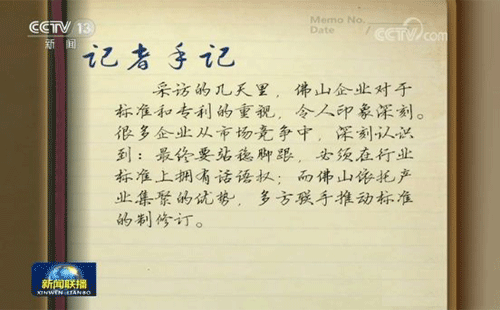 CCTV 13
新闻
Memo No.
Date /
CCTV.com
记者手记
采访的几天里，佛山企业对于
标准和专利的重视，令人印象深刻。
很多企业从市场竞争中，深刻认识
到：最终要站稳脚跟，必须在行业
标准上拥有话语权；而佛山依托产
业集聚的优势，多方联手推动标准
的制修订。
新闻联播
XINWEN LIANBO